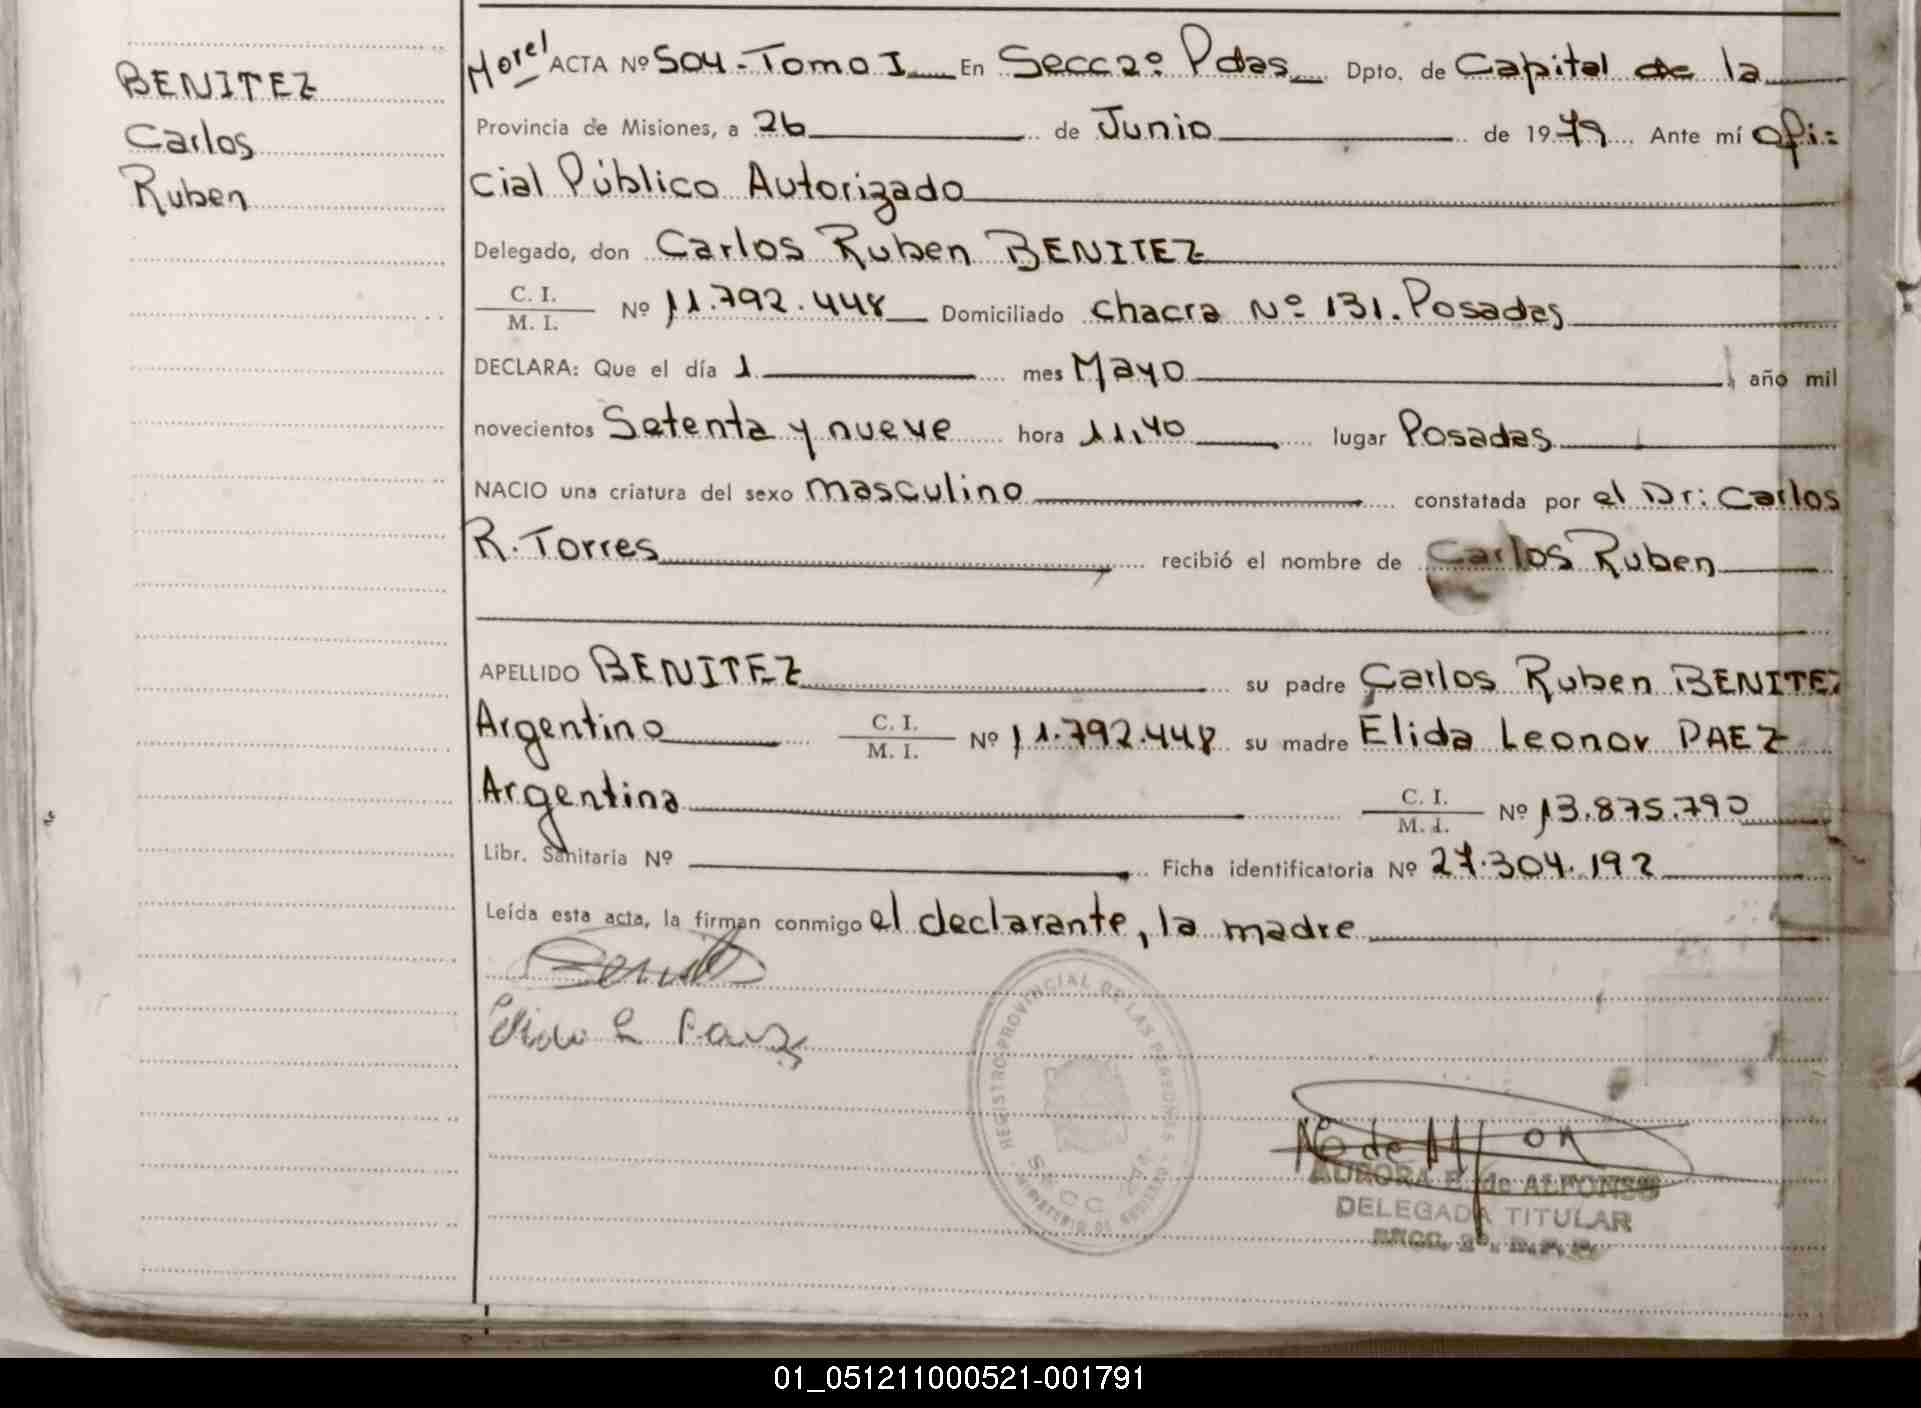 BENITEZ
Carlos
Ruben
Morel ACTA Nº 504 - Tomo I En Secc 2º Pdas Dpto. de Capital de la
Provincia de Misiones, a 26 de Junio de 1979 Ante mí Ofi=
cial Público Autorizado
Delegado, don Carlos Ruben BENITEZ
C. I.
M. I. Nº 11.792.448 Domiciliado Chacra Nº 131. Posadas
DECLARA: Que el día 1 mes Mayo año mil
novecientos Setenta y nueve hora 11,40 lugar Posadas
NACIO una criatura del sexo masculino constatada por el Dr: Carlos
R. Torres recibió el nombre de Carlos Ruben
APELLIDO BENITEZ su padre Carlos Ruben BENITEZ
Argentino C. I. M. I. Nº 11.792.448 su madre Elida Leonor PAEZ
Argentina C. I. M. I. Nº 13.875.790
Libr. Sanitaria Nº Ficha identificatoria Nº 27.304.192
Leída esta acta, la firman conmigo el declarante, la madre
Elida L Paez
REGISTRO PROVINCIAL DE LAS PERSONAS
SECC 2ª
AURORA E. de ALFONSO
DELEGADA TITULAR
SECC. 2ª
01_051211000521-001791